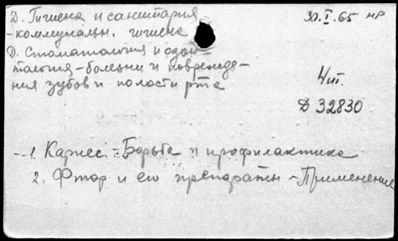 Д. Гигиена и санитария
30.I.65 нр
-коммунальн. гигиена
Д. Стоматология и одон-
тология-болезни и поврежде-
ния зубов и полости рта
4ит.
Д 32830
-1. Кариес-Борьба и профилактика
2. Фтор и его препараты-Применение